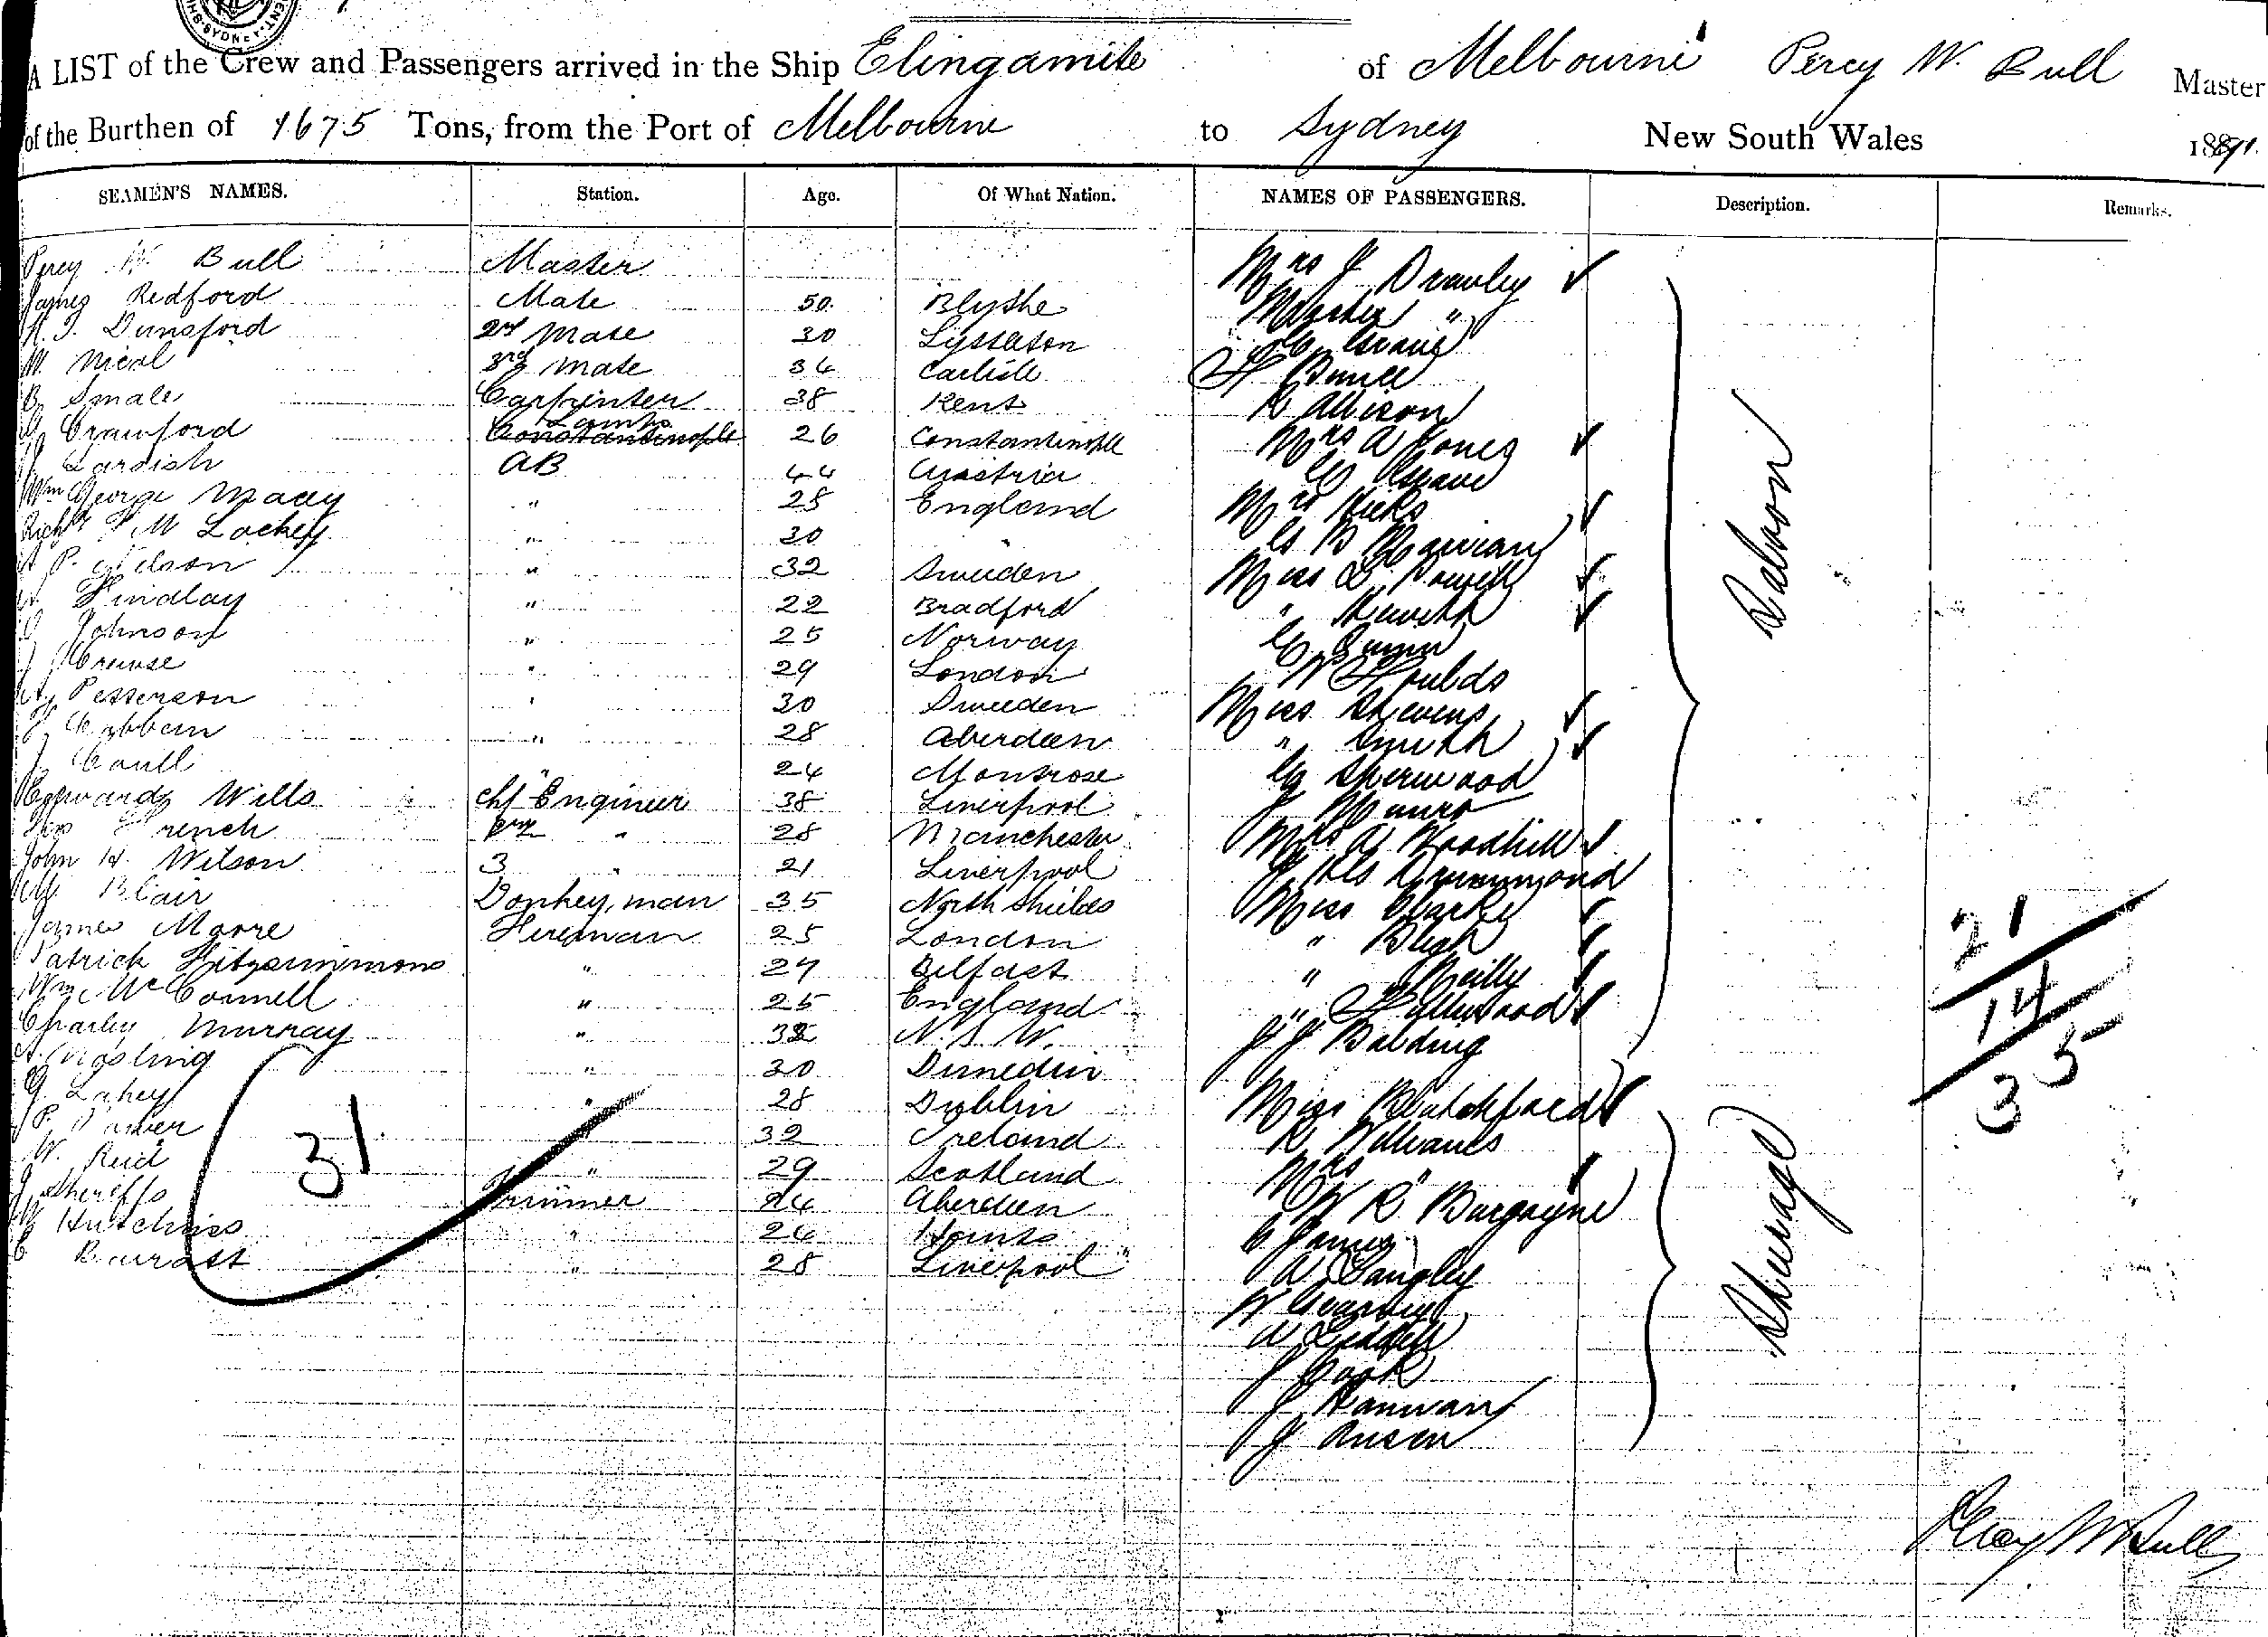 SYDNEY
A LIST of the Crew and Passengers arrived in the Ship Elingamite of Melbourne Percy W. Bull Master
of the Burthen of 1675 Tons, from the Port of Melbourne to Sydney New South Wales 1891
SEAMEN'S NAMES. Station. Age. Of What Nation. NAMES OF PASSENGERS. Description. Remarks.
Percy W. Bull Master Mrs J
James Redford Mate 50 Blythe Master "
Dunsford 2nd Mate 30 Lyttleton
W. Nicol 3rd Mate 34 Carlisle
B Smale Carpenter 38 Kent R Allison
Crawford Lamps Constantinople 26 Constantinople Mrs A Jones
AB 44 Austria
Wm George Macey " 25 England Mrs Hicks
Lockey " 30 "
P. Nelson " 32 Sweden Miss L Powell
Findlay " 22 Bradford "
Johnson " 25 Norway
J Crouse " 29 London W Foulds
Petterson " 30 Sweden Miss Stevens
" 28 Aberdeen " Smith
J Caull " 24 Montrose Sherwood
Edward Wills Chf Engineer 38 Liverpool J Munro
French 2nd " 28 Manchester Mrs A Woodhill
John H. Wilson 3 " 21 Liverpool Drummond
Blair Donkey, man 35 North Shields Miss Clarke
James Moore Fireman 25 London "
Patrick Fitzsimmons " 27 Belfast " Reilly
Wm McConnell " 25 England "
Charley Murray " 32 N.S.W. J J Balding
Gosling " 30 Dunedin
G. Lahey " 28 Dublin Miss Blatchford
P. " 32 Ireland R Williams
W. Reid " 29 Scotland Mrs "
J Sheriffs Trimmer 24 Aberdeen W R Burgoyne
Hutchins " 24 Hants C James
C " 28 Liverpool A Langley
W
A Liddell
J Cook
J
J
Saloon
Steerage
31
21
14
35
Percy W Bull